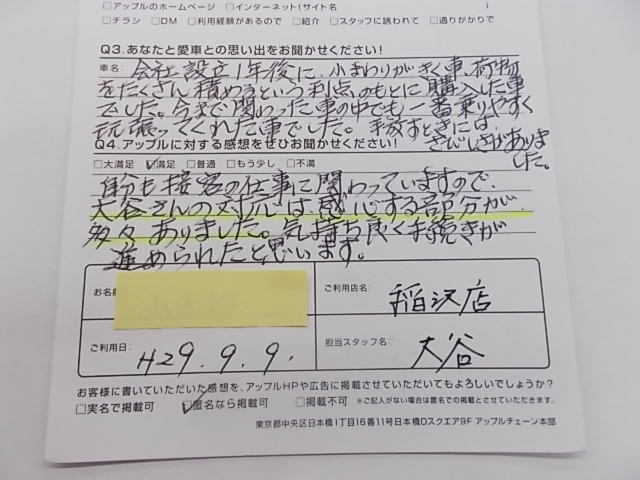 □アップルのホームページ □インターネット(サイト名 )
□チラシ □DM □利用経験があるので □紹介 □スタッフに誘われて □通りがかりで
Q3.あなたと愛車との思い出をお聞かせください!
車名: 会社設立1年後に、小まわりがきく車、荷物
をたくさん積めるという利点のもとに購入した車
でした。今まで関わった車の中でも一番乗りやすく
頑張ってくれた車でした。手放すときには、
さびしさがありま
した。
Q4.アップルに対する感想をぜひお聞かせください!
□大満足 ☑満足 □普通 □もう少し □不満
自分も接客の仕事に関わっていますので、
大谷さんの対応は感心する部分が、
多々ありました。気持ち良く手続きが
進められたと思います。
お名前
ご利用店名: 稲沢店
ご利用日: H29.9.9.
担当スタッフ名: 大谷
お客様に書いていただいた感想を、アップルHPや広告に掲載させていただいてもよろしいでしょうか?
□実名で掲載可 ☑匿名なら掲載可 □掲載不可 ※ご記入がない場合は匿名での掲載とさせていただきます。
東京都中央区日本橋1丁目16番11号日本橋Dスクエア9F アップルチェーン本部